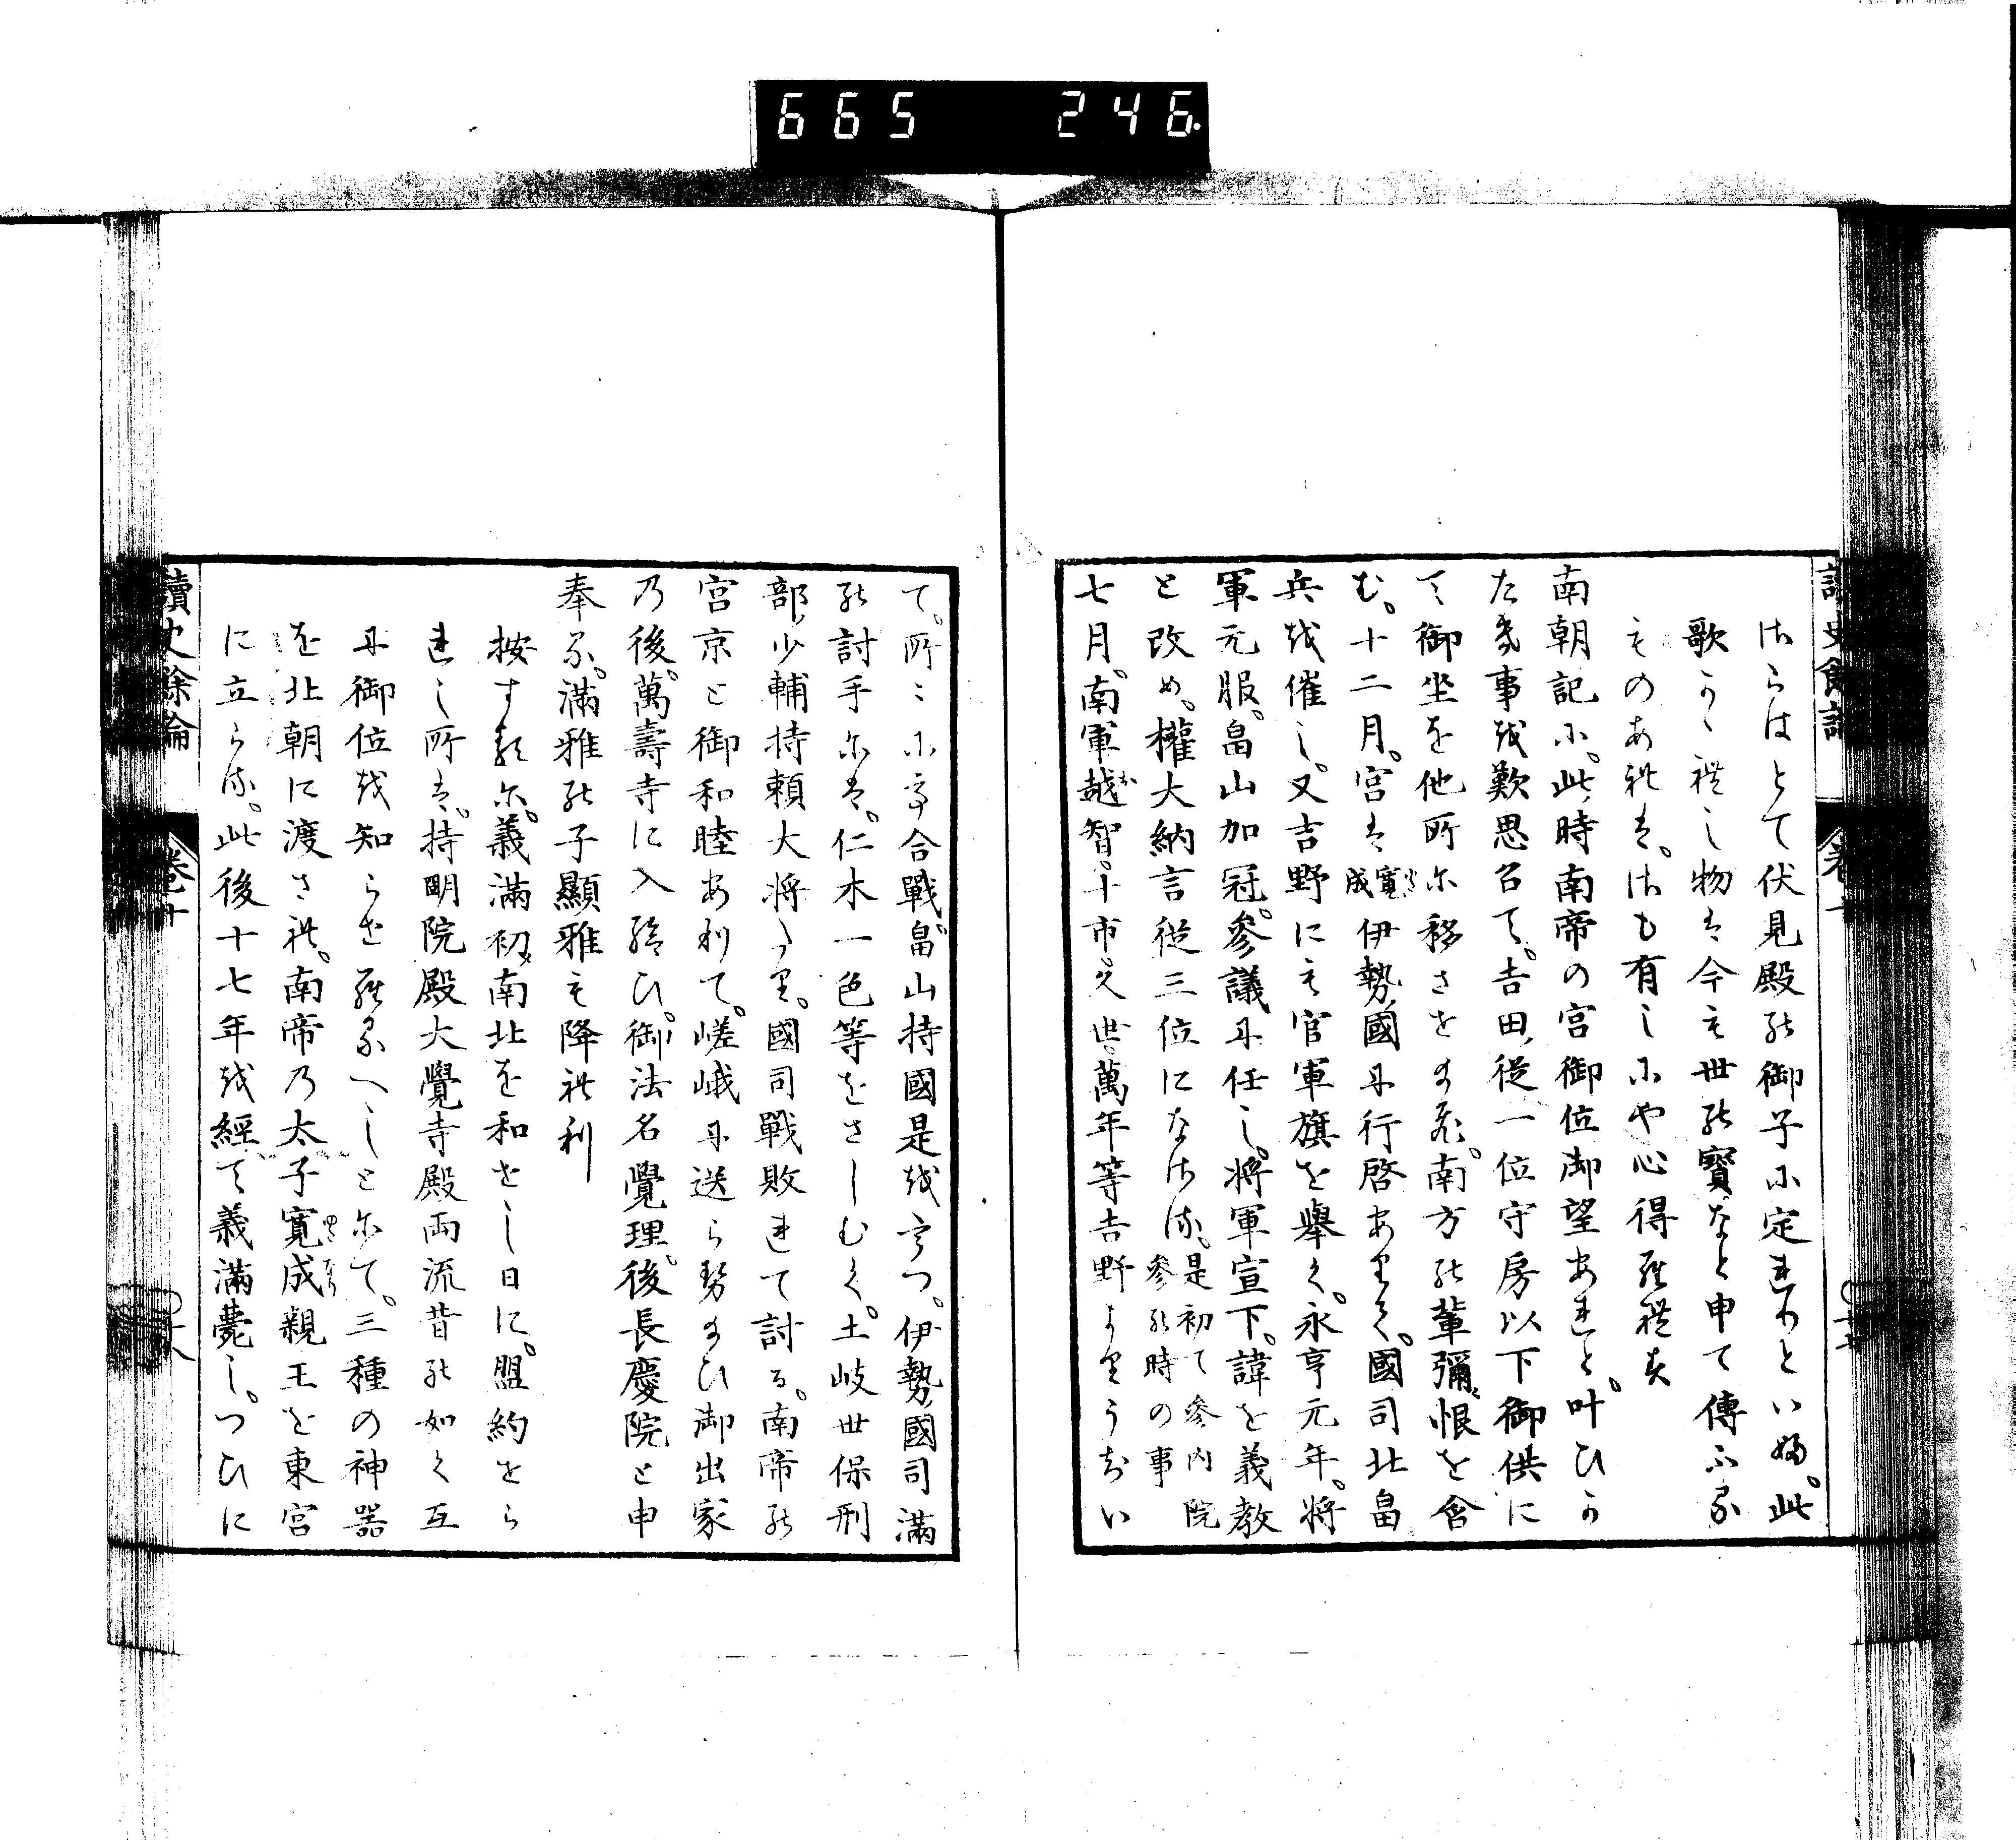 665 246
はらはとて伏見殿の御子に定まれりといふ。此
歌かくれし物は今も世の寶なと申て傳ふる
ものあれは。さも有しにや心得られす
南朝記に。此時南帝の宮御位御望あれと。叶ひか
たき事を歎思召て。吉田從一位守房以下御供に
て御坐を他所に移させ給ふ。南方の輩彌恨を含
む。十二月。宮は寬成伊勢國に行啓ありて。國司北畠
兵を催し。又吉野にも官軍旗を擧く。永享元年。將
軍元服。畠山加冠。參議に任し。將軍宣下。諱を義敎
と改め。權大納言從三位になさる。是初て參內院參の時の事
七月。南軍越智。十市。久世。萬年等吉野よりうちい
て。所々にて合戰。畠山持國是をうつ。伊勢國司滿
の討手には。仁木一色等をさしむく。土岐世保刑
部少輔持賴大將たり。國司戰敗れて討る。南帝の
宮京と御和睦ありて。嵯峨に送らせ給ひ御出家
乃後。萬壽寺に入給ひ。御法名覺理。後長慶院と申
奉る。滿雅の子顯雅も降れり
按するに。義滿初南北を和せし日に。盟約せら
れし所は。持明院殿大覺寺殿兩流昔の如く互
に御位を知らせ給へしとにて。三種の神器
を北朝に渡され。南帝乃太子寬成親王を東宮
に立らる。此後十七年を經て義滿薨し。つひに
讀史餘論 卷十